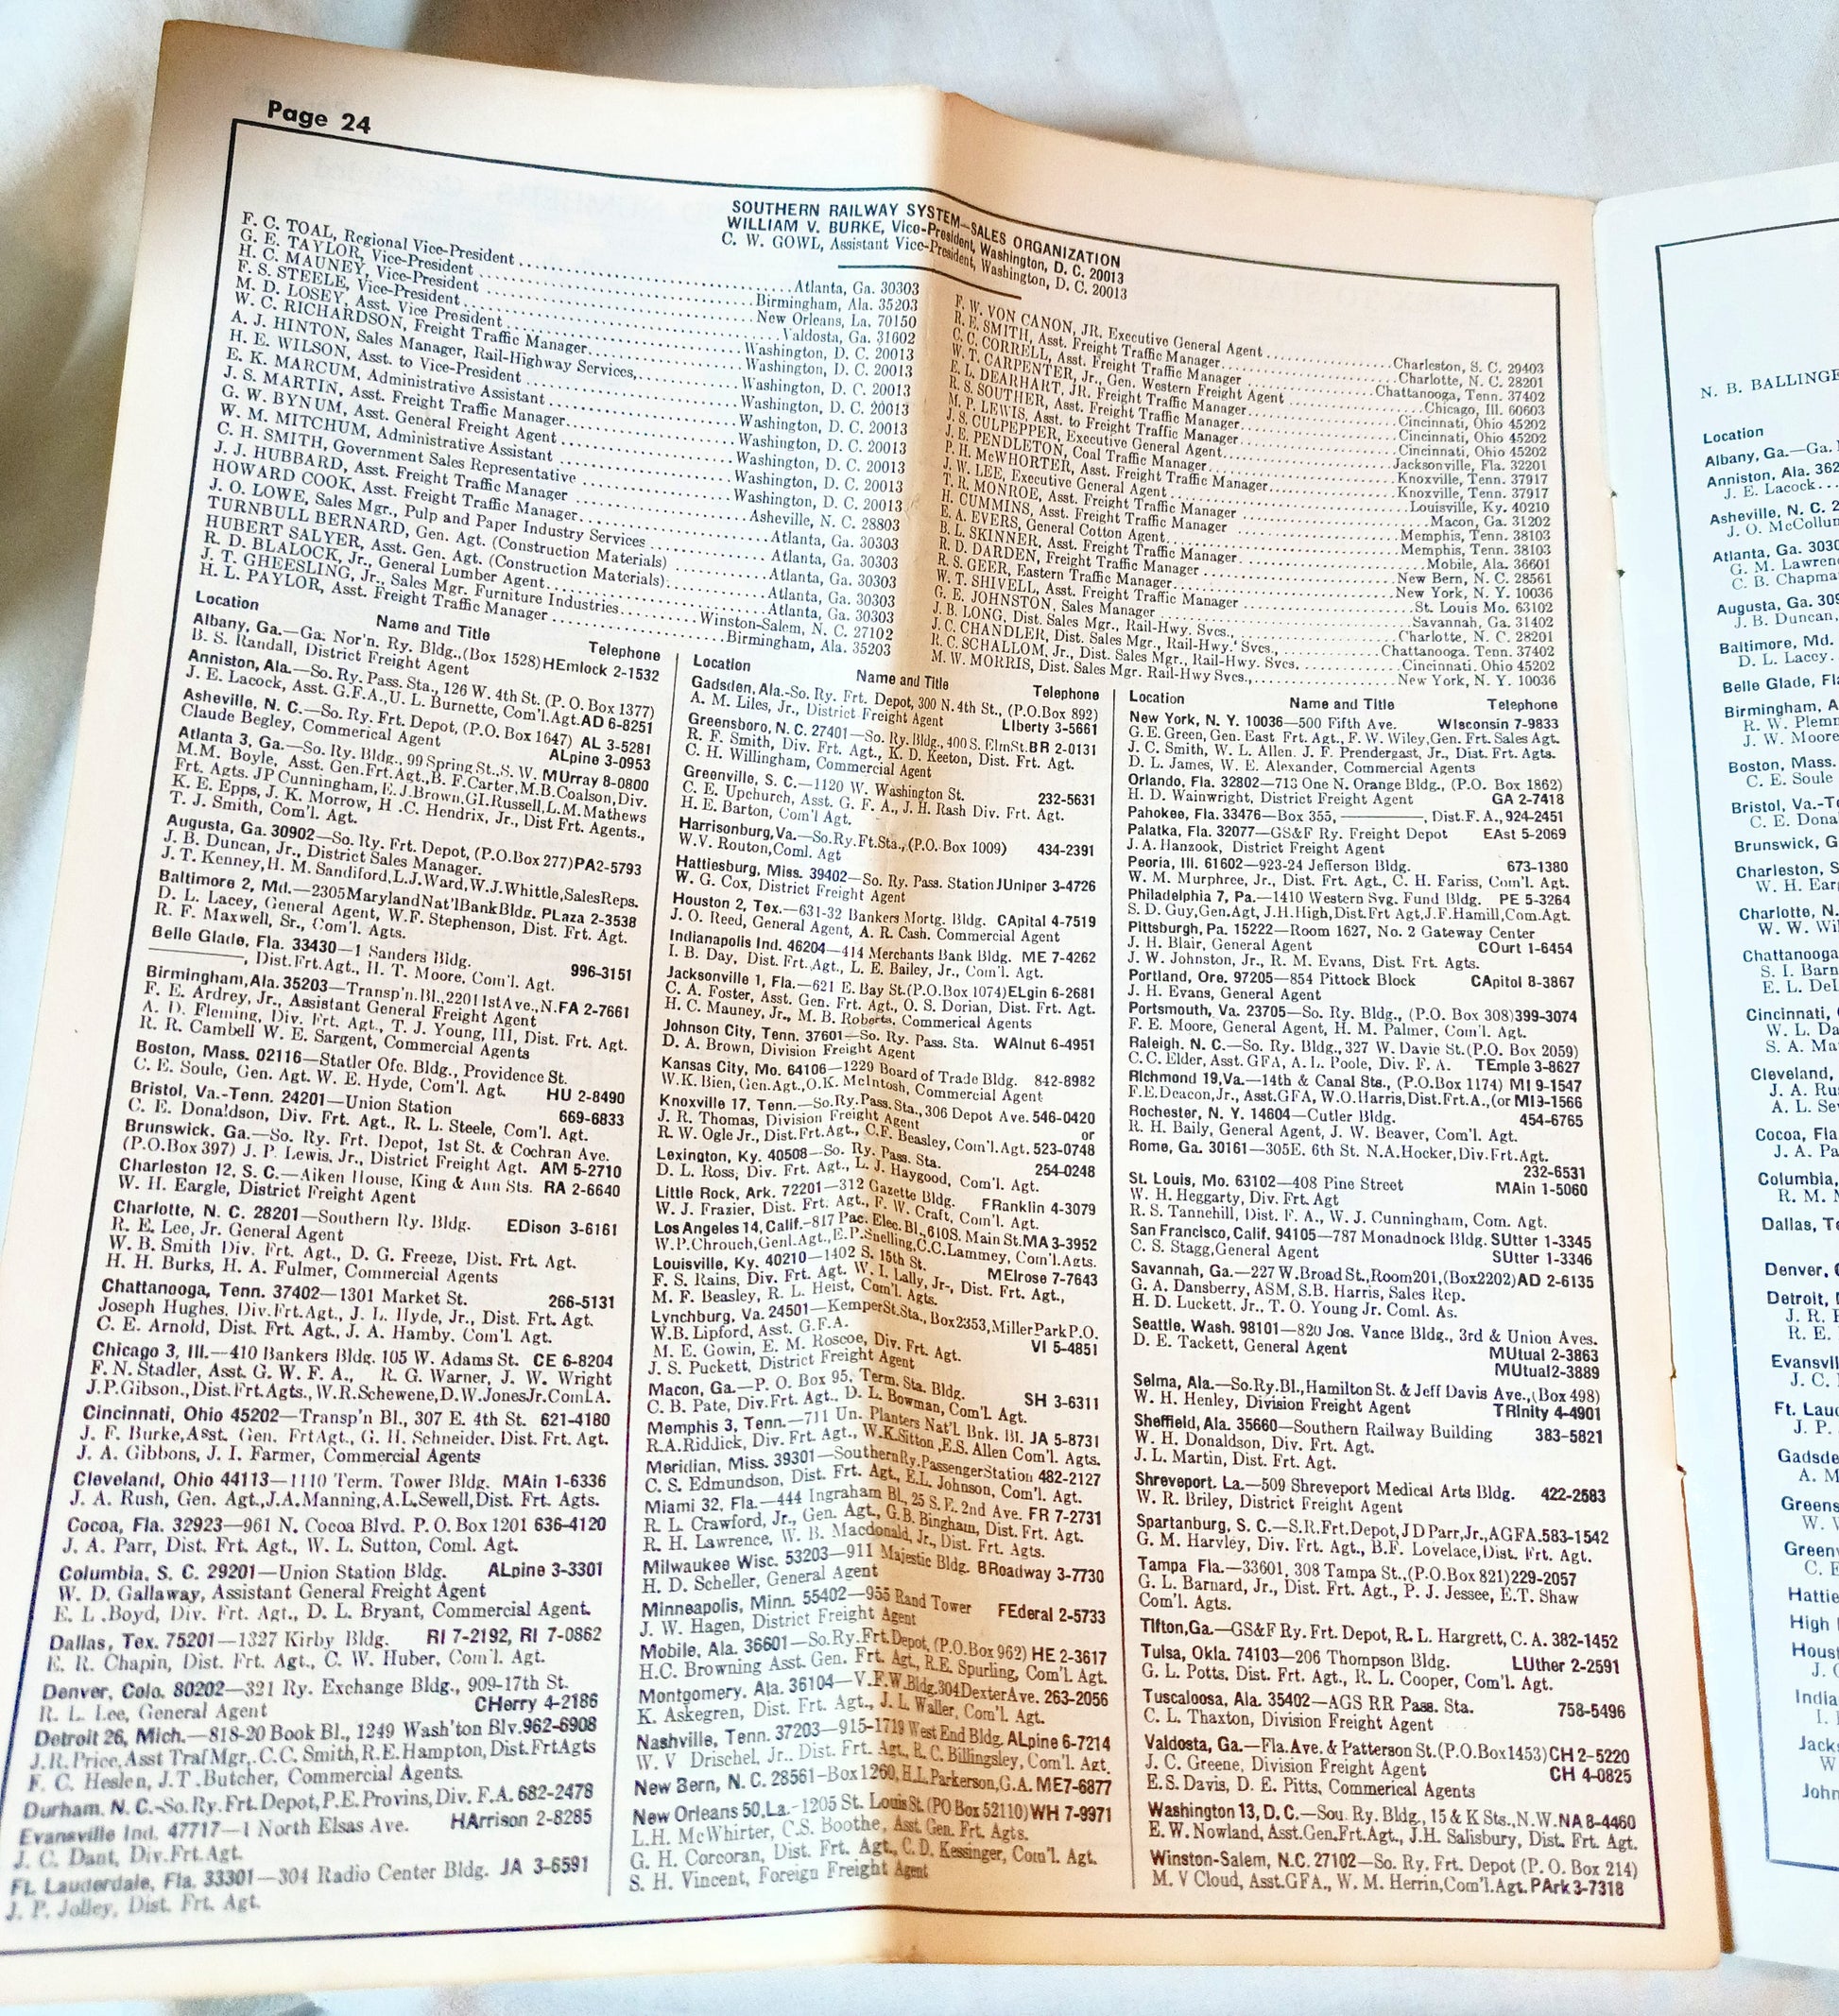 Page 24
SOUTHERN RAILWAY SYSTEM—SALES ORGANIZATION
WILLIAM V. BURKE, Vice-President, Washington, D. C. 20013
C. W. GOWL, Assistant Vice-President, Washington, D. C. 20013
F. C. TOAL, Regional Vice-President Atlanta, Ga. 30303
G. E. TAYLOR, Vice-President Birmingham, Ala. 35203
H. C. MAUNEY, Vice-President New Orleans, La. 70150
F. S. STEELE, Vice-President Valdosta, Ga. 31602
M. D. LOSEY, Asst. Vice President Washington, D. C. 20013
W. C. RICHARDSON, Freight Traffic Manager Washington, D. C. 20013
A. J. HINTON, Sales Manager, Rail-Highway Services, Washington, D. C. 20013
H. E. WILSON, Asst. to Vice-President Washington, D. C. 20013
E. K. MARCUM, Administrative Assistant Washington, D. C. 20013
J. S. MARTIN, Asst. Freight Traffic Manager Washington, D. C. 20013
G. W. BYNUM, Asst. General Freight Agent Washington, D. C. 20013
W. M. MITCHUM, Administrative Assistant Washington, D. C. 20013
C. H. SMITH, Government Sales Representative Washington, D. C. 20013
J. J. HUBBARD, Asst. Freight Traffic Manager Asheville, N. C. 28803
HOWARD COOK, Asst. Freight Traffic Manager Atlanta, Ga. 30303
J. O. LOWE, Sales Mgr., Pulp and Paper Industry Services Atlanta, Ga. 30303
TURNBULL BERNARD, Gen. Agt. (Construction Materials) Atlanta, Ga. 30303
HUBERT SALYER, Asst. Gen. Agt. (Construction Materials) Atlanta, Ga. 30303
R. D. BLALOCK, Jr., General Lumber Agent Atlanta, Ga. 30303
J. T. GHEESLING, Jr., Sales Mgr. Furniture Industries Winston-Salem, N. C. 27102
H. L. PAYLOR, Asst. Freight Traffic Manager Birmingham, Ala. 35203
F. W. VON CANON, JR. Executive General Agent Charleston, S. C. 29403
R. E. SMITH, Asst. Freight Traffic Manager Charlotte, N. C. 28201
C. C. CORRELL, Asst. Freight Traffic Manager Chattanooga, Tenn. 37402
W. T. CARPENTER, Jr., Gen. Western Freight Agent Chicago, Ill. 60603
E. L. DEARHART, JR. Freight Traffic Manager Cincinnati, Ohio 45202
R. S. SOUTHER, Asst. Freight Traffic Manager Cincinnati, Ohio 45202
M. P. LEWIS, Asst. to Freight Traffic Manager Cincinnati, Ohio 45202
J. S. CULPEPPER, Executive General Agent Jacksonville, Fla. 32201
J. E. PENDLETON, Coal Traffic Manager Knoxville, Tenn. 37917
P. H. McWHORTER, Asst. Freight Traffic Manager Knoxville, Tenn. 37917
J. W. LEE, Executive General Agent Louisville, Ky. 40210
T. R. MONROE, Asst. Freight Traffic Manager Macon, Ga. 31202
H. CUMMINS, Asst. Freight Traffic Manager Memphis, Tenn. 38103
E. A. EVERS, General Cotton Agent Memphis, Tenn. 38103
B. L. SKINNER, Asst. Freight Traffic Manager Mobile, Ala. 36601
R. D. DARDEN, Freight Traffic Manager New Bern, N. C. 28561
R. S. GEER, Eastern Traffic Manager New York, N. Y. 10036
W. T. SHIVELL, Asst. Freight Traffic Manager St. Louis Mo. 63102
G. E. JOHNSTON, Sales Manager Savannah, Ga. 31402
J. B. LONG, Dist. Sales Mgr., Rail-Hwy. Svcs., Charlotte, N. C. 28201
J. C. CHANDLER, Dist. Sales Mgr., Rail-Hwy. Svcs., Chattanooga. Tenn. 37402
R. C. SCHALLOM, Jr., Dist. Sales Mgr., Rail-Hwy. Svcs. Cincinnati. Ohio 45202
M. W. MORRIS, Dist. Sales Mgr. Rail-Hwy Svcs., New York, N. Y. 10036
Location Name and Title Telephone
Albany, Ga.—Ga. Nor'n. Ry. Bldg.,(Box 1528) HEmlock 2-1532
B. S. Randall, District Freight Agent
Anniston, Ala.—So. Ry. Pass. Sta., 126 W. 4th St. (P. O. Box 1377)
J. E. Lacock, Asst. G.F.A., U. L. Burnette, Com'l. Agt. AD 6-8251
Asheville, N. C.—So. Ry. Frt. Depot, (P.O. Box 1647) AL 3-5281
Claude Begley, Commercial Agent ALpine 3-0953
Atlanta 3, Ga.—So. Ry. Bldg., 99 Spring St., S. W. MUrray 8-0800
M.M. Boyle, Asst. Gen.Frt.Agt., B. F. Carter, M.B. Coalson, Div.
Frt. Agts. JP Cunningham, E. J. Brown, GI. Russell, L.M. Mathews
K. E. Epps, J. K. Morrow, H .C. Hendrix, Jr., Dist Frt. Agents.,
T. J. Smith, Com'l. Agt.
Augusta, Ga. 30902—So. Ry. Frt. Depot, (P.O. Box 277) PA2-5793
J. B. Duncan, Jr., District Sales Manager.
J. T. Kenney, H. M. Sandiford, L.J. Ward, W.J. Whittle, Sales Reps.
Baltimore 2, Md.—2305 Maryland Nat'l Bank Bldg. PLaza 2-3538
D. L. Lacey, General Agent, W.F. Stephenson, Dist. Frt. Agt.
R. F. Maxwell, Sr., Com'l. Agts.
Belle Glade, Fla. 33430—1 Sanders Bldg. 996-3151
————, Dist.Frt.Agt., H. T. Moore, Com'l. Agt.
Birmingham, Ala. 35203—Transp'n. Bl., 2201 1st Ave., N. FA 2-7661
F. E. Ardrey, Jr., Assistant General Freight Agent
A. D. Fleming, Div. Frt. Agt., T. J. Young, III, Dist. Frt. Agt.
R. R. Cambell W. E. Sargent, Commercial Agents
Boston, Mass. 02116—Statler Ofc. Bldg., Providence St.
C. E. Soule, Gen. Agt. W. E. Hyde, Com'l. Agt. HU 2-8490
Bristol, Va.-Tenn. 24201—Union Station 669-6833
C. E. Donaldson, Div. Frt. Agt., R. L. Steele, Com'l. Agt.
Brunswick, Ga.—So. Ry. Frt. Depot, 1st St. & Cochran Ave.
(P.O.Box 397) J. P. Lewis, Jr., District Freight Agt. AM 5-2710
Charleston 12, S. C.—Aiken House, King & Ann Sts. RA 2-6640
W. H. Eargle, District Freight Agent
Charlotte, N. C. 28201—Southern Ry. Bldg. EDison 3-6161
R. E. Lee, Jr. General Agent
W. B. Smith Div. Frt. Agt., D. G. Freeze, Dist. Frt. Agt.
H. H. Burks, H. A. Fulmer, Commercial Agents
Chattanooga, Tenn. 37402—1301 Market St. 266-5131
Joseph Hughes, Div.Frt.Agt., J. L. Hyde, Jr., Dist. Frt. Agt.
C. E. Arnold, Dist. Frt. Agt., J. A. Hamby. Com'l. Agt.
Chicago 3, Ill.—410 Bankers Bldg. 105 W. Adams St. CE 6-8204
F. N. Stadler, Asst. G. W. F. A., R. G. Warner, J. W. Wright
J.P. Gibson., Dist. Frt. Agts., W.R. Schewene, D.W. Jones Jr. Coml. A.
Cincinnati, Ohio 45202—Transp'n Bl., 307 E. 4th St. 621-4180
J. F. Burke, Asst. Gen. Frt Agt., G. H. Schneider. Dist. Frt. Agt.
J. A. Gibbons, J. I. Farmer, Commercial Agents
Cleveland, Ohio 44113—1110 Term. Tower Bldg. MAin 1-6336
J. A. Rush, Gen. Agt., J.A. Manning, A.L. Sewell, Dist. Frt. Agts.
Cocoa, Fla. 32923—961 N. Cocoa Blvd. P. O. Box 1201 636-4120
J. A. Parr, Dist. Frt. Agt., W. L. Sutton, Coml. Agt.
Columbia, S. C. 29201—Union Station Bldg. ALpine 3-3301
W. D. Gallaway, Assistant General Freight Agent
E. L .Boyd, Div. Frt. Agt., D. L. Bryant, Commercial Agent.
Dallas, Tex. 75201—1327 Kirby Bldg. RI 7-2192, RI 7-0862
E. R. Chapin, Dist. Frt. Agt., C. W. Huber, Com'l. Agt.
Denver, Colo. 80202—321 Ry. Exchange Bldg., 909-17th St.
R. L. Lee, General Agent CHerry 4-2186
Detroit 26, Mich.—818-20 Book Bl., 1249 Wash'ton Blv. 962-6908
J.R. Price, Asst Traf Mgr., C.C. Smith, R.E. Hampton, Dist. Frt Agts
F. C. Heslen, J.T .Butcher, Commercial Agents.
Durham. N. C.-So. Ry. Frt. Depot, P.E. Provins, Div. F.A. 682-2478
Evansville Ind. 47717—1 North Elsas Ave. HArrison 2-8285
J. C. Dant, Div.Frt.Agt.
Ft. Lauderdale, Fla. 33301—304 Radio Center Bldg. JA 3-6591
J. P. Jolley, Dist. Frt. Agt.
Location Name and Title Telephone
Gadsden, Ala.-So. Ry. Frt. Depot, 300 N. 4th St., (P.O.Box 892)
A. M. Liles, Jr., District Freight Agent LIberty 3-5661
Greensboro, N. C. 27401—So. Ry. Bldg., 400 S. Elm St. BR 2-0131
R. F. Smith, Div. Frt. Agt., K. D. Keeton, Dist. Frt. Agt.
C. H. Willingham, Commercial Agent
Greenville, S. C.—1120 W. Washington St. 232-5631
C. E. Upchurch, Asst. G. F. A., J. H. Rash Div. Frt. Agt.
H. E. Barton, Com'l Agt.
Harrisonburg, Va.—So. Ry. Ft. Sta., (P.O. Box 1009) 434-2391
W.V. Routon, Coml. Agt
Hattiesburg, Miss. 39402—So. Ry. Pass. Station JUniper 3-4726
W. G. Cox, District Freight Agent
Houston 2, Tex.—631-32 Bankers Mortg. Bldg. CApital 4-7519
J. O. Reed, General Agent, A. R. Cash. Commercial Agent
Indianapolis Ind. 46204—414 Merchants Bank Bldg. ME 7-4262
I. B. Day, Dist. Frt. Agt., L. E. Bailey, Jr., Com'l. Agt.
Jacksonville 1, Fla.—621 E. Bay St. (P.O. Box 1074) ELgin 6-2681
C. A. Foster, Asst. Gen. Frt. Agt., O. S. Dorian, Dist. Frt. Agt.
H. C. Mauney, Jr., M. B. Roberts, Commerical Agents
Johnson City, Tenn. 37601—So. Ry. Pass. Sta. WAlnut 6-4951
D. A. Brown, Division Freight Agent
Kansas City, Mo. 64106—1229 Board of Trade Bldg. 842-8982
W.K. Bien, Gen. Agt., O.K. McIntosh, Commercial Agent
Knoxville 17, Tenn.—So. Ry. Pass. Sta., 306 Depot Ave. 546-0420
J. R. Thomas, Division Freight Agent or
R. W. Ogle Jr., Dist.Frt.Agt., C.F. Beasley, Com'l. Agt. 523-0748
Lexington, Ky. 40508—So. Ry. Pass. Sta. 254-0248
D. L. Ross, Div. Frt. Agt., L. J. Haygood, Com'l. Agt.
Little Rock, Ark. 72201—312 Gazette Bldg. FRanklin 4-3079
W. J. Frazier, Dist. Frt. Agt., F. W. Craft, Com'l. Agt.
Los Angeles 14, Calif.—817 Pac. Elec. Bl., 610 S. Main St. MA 3-3952
W.P. Chrouch, Genl. Agt., E.P. Snelling, C.C. Lammey, Com'l. Agts.
Louisville, Ky. 40210—1402 S. 15th St. MElrose 7-7643
F. S. Rains, Div. Frt. Agt. W. I. Lally, Jr., Dist. Frt. Agt.,
M. F. Beasley, R. L. Heist, Com'l. Agts.
Lynchburg, Va. 24501—Kemper St. Sta., Box 2353, Miller Park P.O.
W.B. Lipford, Asst. G.F.A. VI 5-4851
M. E. Gowin, E. M. Roscoe, Div. Frt. Agt.
J. S. Puckett, District Freight Agent
Macon, Ga.—P. O. Box 95, Term. Sta. Bldg. SH 3-6311
C. B. Pate, Div. Frt. Agt., D. L. Bowman, Com'l. Agt.
Memphis 3, Tenn.—711 Un. Planters Nat'l. Bnk. Bl. JA 5-8731
R.A. Riddick, Div. Frt. Agt., W.K. Sitton, E.S. Allen Com'l. Agts.
Meridian, Miss. 39301—Southern Ry. Passenger Station 482-2127
C. S. Edmundson, Dist. Frt. Agt., E.L. Johnson, Com'l. Agt.
Miami 32, Fla.—444 Ingraham Bl., 25 S. E. 2nd Ave. FR 7-2731
R. L. Crawford, Jr., Gen. Agt., G.B. Bingham, Dist. Frt. Agt.
R. H. Lawrence, W. B. Macdonald, Jr., Dist. Frt. Agts.
Milwaukee Wisc. 53203—911 Majestic Bldg. BRoadway 3-7730
H. D. Scheller, General Agent
Minneapolis, Minn. 55402—955 Rand Tower FEderal 2-5733
J. W. Hagen, District Freight Agent
Mobile, Ala. 36601—So. Ry. Frt. Depot, (P.O. Box 962) HE 2-3617
H.C. Browning Asst. Gen. Frt. Agt., R.E. Spurling, Com'l. Agt.
Montgomery. Ala. 36104—V.F.W. Bldg. 304 Dexter Ave. 263-2056
K. Askegren, Dist. Frt. Agt., J. L. Waller, Com'l. Agt.
Nashville, Tenn. 37203—915-1719 West End Bldg. ALpine 6-7214
W. V Drischel, Jr.. Dist. Frt. Agt., R. C. Billingsley, Com'l. Agt.
New Bern, N. C. 28561—Box 1260, H.L. Parkerson, G.A. ME7-6877
New Orleans 50, La.—1205 St. Louis St. (PO Box 52110) WH 7-9971
L.H. McWhirter, C.S. Boothe, Asst. Gen. Frt. Agts.
G. H. Corcoran, Dist. Frt. Agt., C. D. Kessinger, Com'l. Agt.
S. H. Vincent, Foreign Freight Agent
Location Name and Title Telephone
New York, N. Y. 10036—500 Fifth Ave. WIsconsin 7-9833
G.E. Green, Gen. East Frt. Agt., F. W. Wiley, Gen. Frt. Sales Agt.
J. C. Smith, W. L. Allen. J. F. Prendergast, Jr., Dist. Frt. Agts.
D. L. James, W. E. Alexander, Commercial Agents
Orlando, Fla. 32802—713 One N. Orange Bldg., (P.O. Box 1862)
H. D. Wainwright, District Freight Agent GA 2-7418
Pahokee, Fla. 33476—Box 355, ————, Dist.F.A., 924-2451
Palatka, Fla. 32077—GS&F Ry. Freight Depot EAst 5-2069
J. A. Hanzook, District Freight Agent
Peoria, Ill. 61602—923-24 Jefferson Bldg. 673-1380
W. M. Murphree, Jr., Dist. Frt. Agt., C. H. Fariss, Com'l. Agt.
Philadelphia 7, Pa.—1410 Western Svg. Fund Bldg. PE 5-3264
S. D. Guy, Gen. Agt, J.H. High, Dist. Frt Agt, J.F. Hamill, Com. Agt.
Pittsburgh, Pa. 15222—Room 1627, No. 2 Gateway Center
J. H. Blair, General Agent COurt 1-6454
J. W. Johnston, Jr., R. M. Evans, Dist. Frt. Agts.
Portland, Ore. 97205—854 Pittock Block CApitol 8-3867
J. H. Evans, General Agent
Portsmouth, Va. 23705—So. Ry. Bldg., (P.O. Box 308) 399-3074
F. E. Moore, General Agent, H. M. Palmer, Com'l. Agt.
Raleigh. N. C.—So. Ry. Bldg., 327 W. Davie St. (P.O. Box 2059)
C. C. Elder, Asst. GFA, A. L. Poole, Div. F. A. TEmple 3-8627
RIchmond 19, Va.—14th & Canal Sts., (P.O. Box 1174) MI 9-1547
F.E. Deacon, Jr., Asst. GFA, W.O. Harris, Dist. Frt. A., (or MI9-1566
Rochester, N. Y. 14604—Cutler Bldg. 454-6765
R. H. Baily, General Agent, J. W. Beaver, Com'l. Agt.
Rome, Ga. 30161—305E. 6th St. N.A. Hocker, Div. Frt. Agt.
232-6531
St. Louis, Mo. 63102—408 Pine Street MAin 1-5060
W. H. Heggarty, Div. Frt. Agt
R. S. Tannehill, Dist. F. A., W. J. Cunningham, Com. Agt.
San Francisco, Calif. 94105—787 Monadnock Bldg. SUtter 1-3345
C. S. Stagg, General Agent SUtter 1-3346
Savannah, Ga.—227 W. Broad St., Room 201, (Box 2202) AD 2-6135
G. A. Dansberry, ASM, S.B. Harris, Sales Rep.
H. D. Luckett, Jr., T. O. Young Jr. Coml. As.
Seattle, Wash. 98101—820 Jos. Vance Bldg., 3rd & Union Aves.
D. E. Tackett, General Agent MUtual 2-3863
MUtual2-3889
Selma, Ala.—So. Ry. Bl., Hamilton St. & Jeff Davis Ave., (Box 498)
W. H. Henley, Division Freight Agent TRinity 4-4901
Sheffield, Ala. 35660—Southern Railway Building 383-5821
W. H. Donaldson, Div. Frt. Agt.
J. L. Martin, Dist. Frt. Agt.
Shreveport. La.—509 Shreveport Medical Arts Bldg. 422-2583
W. R. Briley, District Freight Agent
Spartanburg, S. C.—S.R. Frt. Depot, J D Parr, Jr., AGFA. 583-1542
G. M. Harvley, Div. Frt. Agt., B.F. Lovelace, Dist. Frt. Agt.
Tampa Fla.—33601, 308 Tampa St., (P.O. Box 821) 229-2057
G. L. Barnard, Jr., Dist. Frt. Agt., P. J. Jessee, E.T. Shaw
Com'l. Agts.
Tifton, Ga.—GS&F Ry. Frt. Depot, R. L. Hargrett, C. A. 382-1452
Tulsa, Okla. 74103—206 Thompson Bldg. LUther 2-2591
G. L. Potts, Dist. Frt. Agt., R. L. Cooper, Com'l. Agt.
Tuscaloosa, Ala. 35402—AGS RR Pass. Sta. 758-5496
C. L. Thaxton, Division Freight Agent
Valdosta, Ga.—Fla. Ave. & Patterson St. (P.O. Box 1453) CH 2-5220
J. C. Greene, Division Freight Agent CH 4-0825
E. S. Davis, D. E. Pitts, Commerical Agents
Washington 13, D. C.—Sou. Ry. Bldg., 15 & K Sts., N.W. NA 8-4460
E. W. Nowland, Asst. Gen. Frt. Agt., J.H. Salisbury, Dist. Frt. Agt.
Winston-Salem, N.C. 27102—So. Ry. Frt. Depot (P. O. Box 214)
M. V Cloud, Asst. GFA., W. M. Herrin, Com'l. Agt. PArk 3-7318
N. B. BALLINGE
Location
Albany, Ga.—Ga.
Anniston, Ala. 362
J. E. Lacock
Asheville, N. C. 2
J. O. McCollum
Atlanta, Ga. 3030
G. M. Lawren
C. B. Chapma
Augusta, Ga. 309
J. B. Duncan,
Baltimore, Md.
D. L. Lacey
Belle Glade, Fla
Birmingham, A
R. W. Plem
J. W. Moore
Boston, Mass.
C. E. Soule
Bristol, Va.-Te
C. E. Dona
Brunswick, G
Charleston, S
W. H. Ear
Charlotte, N.
W. W. Wi
Chattanooga
S. I. Barn
E. L. De
Cincinnati,
W. L. Da
S. A. Ma
Cleveland,
J. A. Ru
A. L. Se
Cocoa, Fla
J. A. Pa
Columbia,
R. M.
Dallas, T
Denver,
Detroit,
J. R.
R. E.
Evansvill
J. C.
Ft. Laud
J. P.
Gadsde
A. M
Greens
W.
Green
C. E
Hattie
High
Houst
J.
India
I.
Jack
W
John